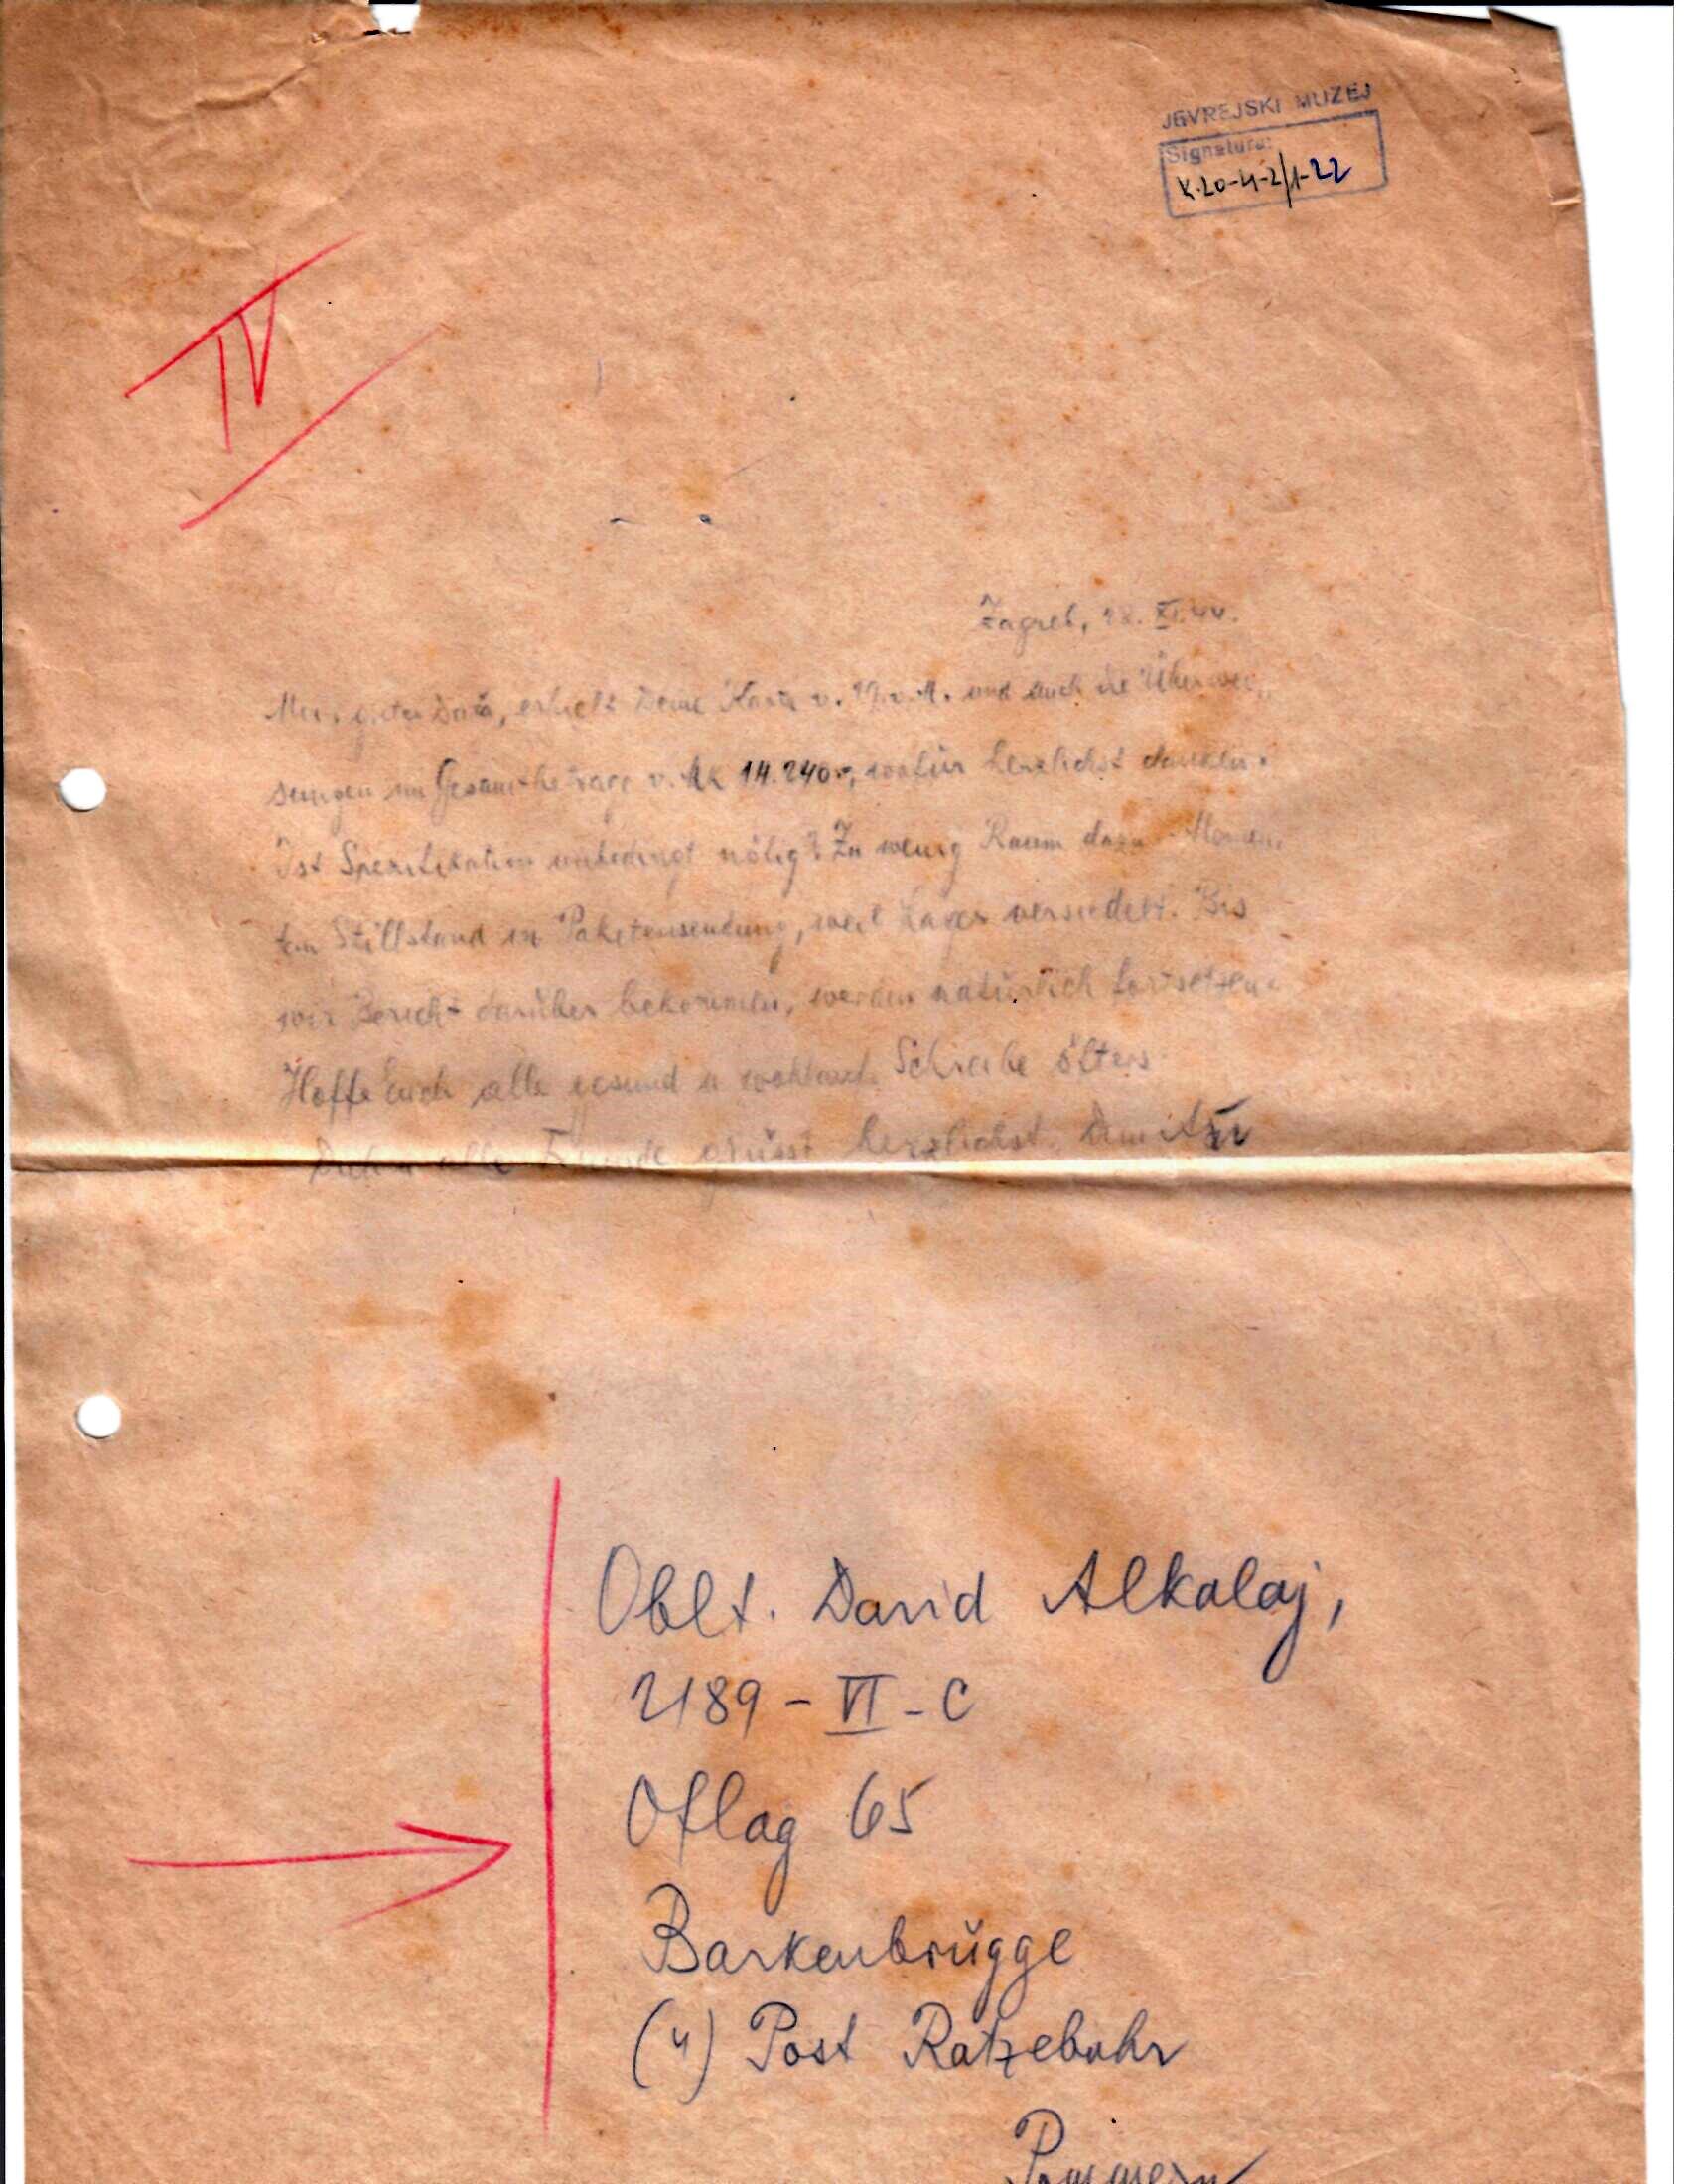 JEVREJSKI MUZEJ
Signatura:
K.20-4-2/1-22
IV
Zagreb, 18. XI. 44.
Mein guter Dača, erhielt Deine Karte v. 19. v. M. und auch die Überwei-
sungen im Gesamtbetrage v. RK 14.240.-, wofür herzlichst danken.
Ist Spezifikation unbedingt nötig? Zu wenig Raum dazu. Momen-
tan Stillstand in Paketensendung, weil Lager versiedelt. Bis
wir Bericht darüber bekommen, werden natürlich fortsetzen.
Hoffe Euch alle gesund u wohlauf. Schreibe öfters.
Dich u alle Freunde grüsst herzlichst Dein
Oblt. David Alkalaj,
2189 - VI - C
Oflag 65
Barkenbrügge
(4) Post Ratzebuhr
Pommern